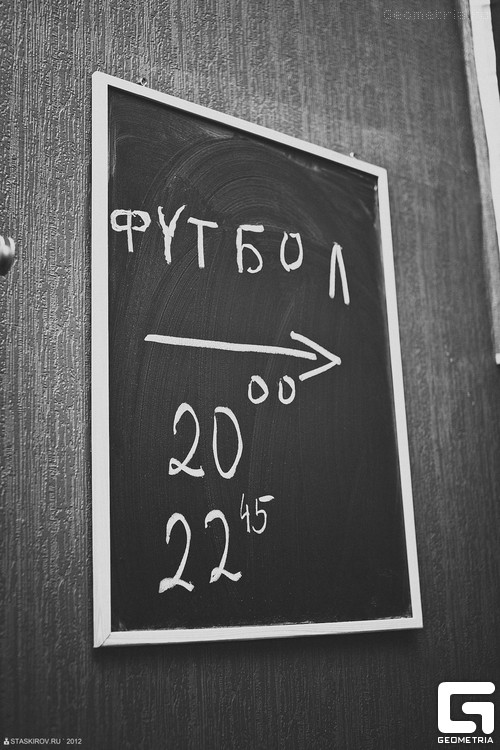 Geometria
ФУТБОЛ
20 00
22 45
GEOMETRIA
STASKIROV.RU ' 2012